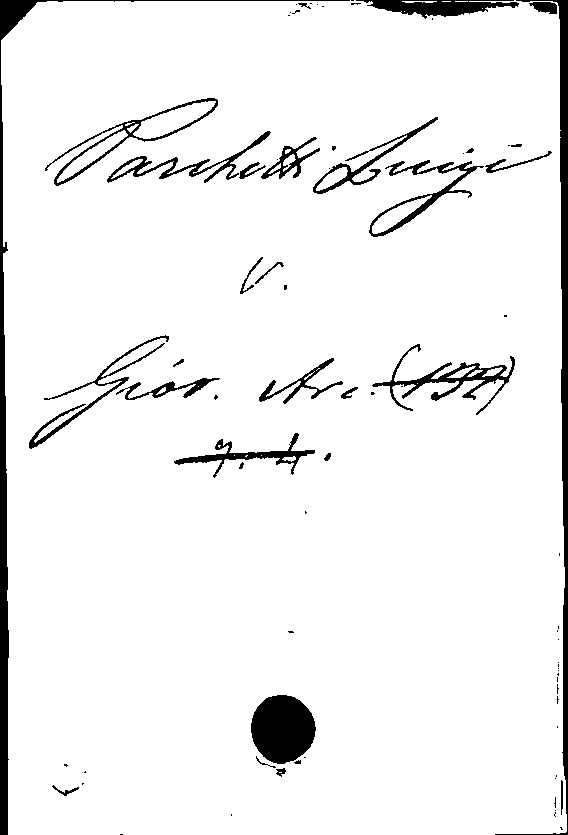 Parchetti Luigi
v.
Giov. Arc.
7. 4.